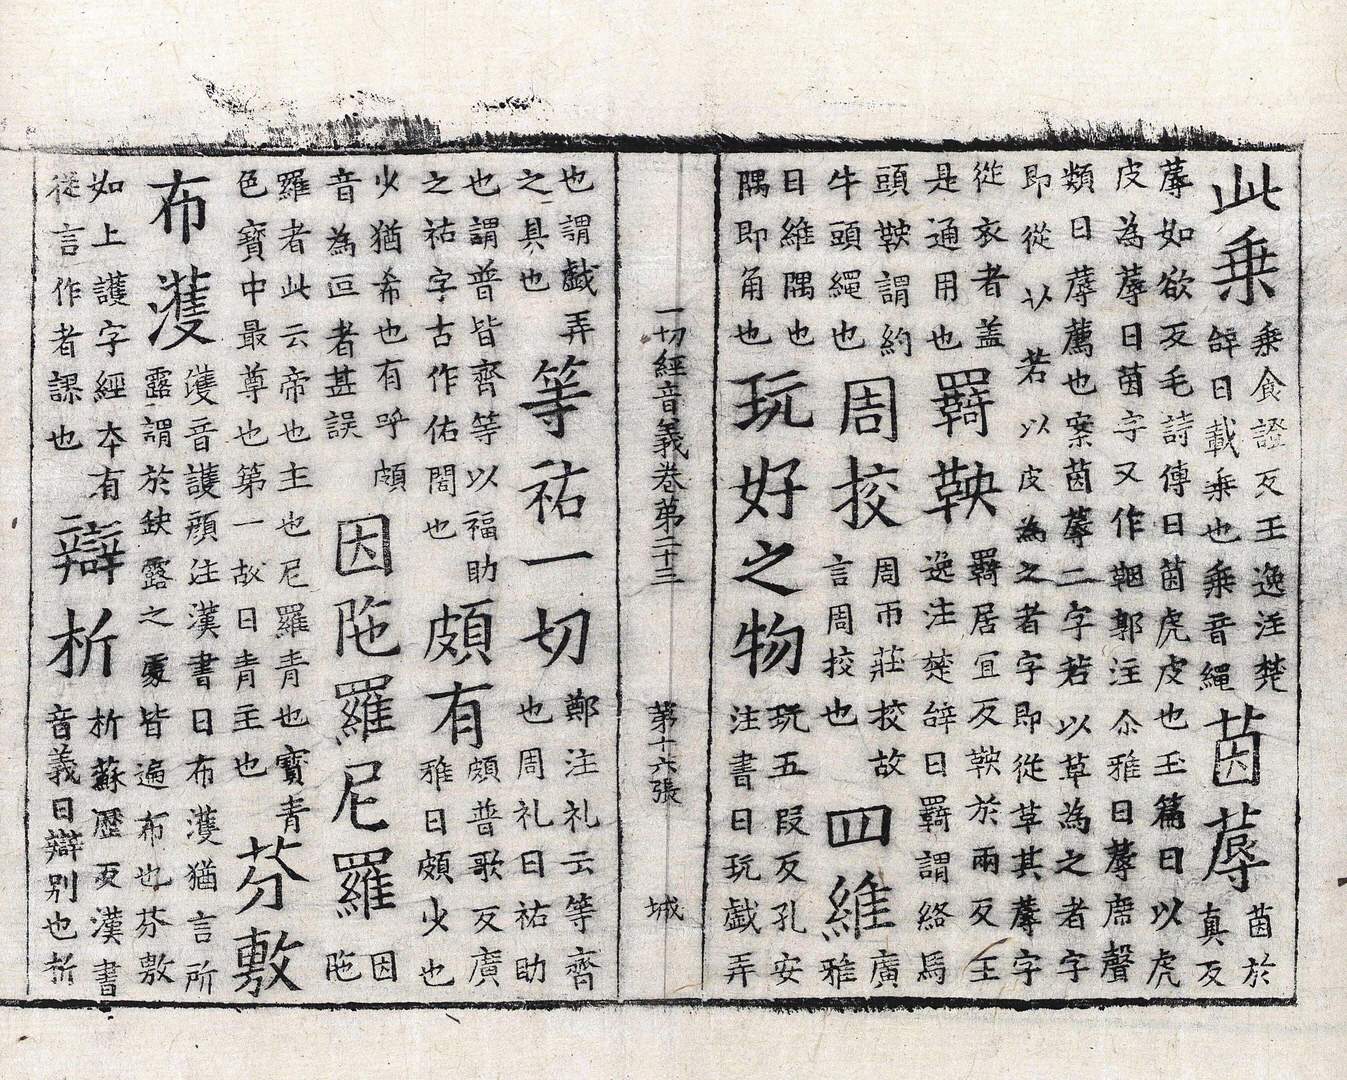 此乗
乗食證反王逸注楚
辝曰載乗也乗音繩
茵蓐
茵於
真反
蓐如欲反毛詩傳曰茵虎皮也玉篇曰以虎
皮為蓐曰茵字又作鞇郭注尒雅曰蓐席聲
類曰蓐薦也案茵蓐二字若以草為之者字
即從以 若以皮為之者字即從草其蓐字
從衣者盖
是通用也
羇鞅
羇居冝反鞅於兩反王
逸注楚辝曰羇謂絡馬
頭鞅謂約
牛頭繩也
周挍
周帀莊挍故
言周挍也
四維
廣
雅
曰維隅也
隅即角也
玩好之物
玩五叚反孔安
注書曰玩戱弄
一切經音義卷第二十三 第十六張 城
也謂戱弄
之具也
等祐一切
鄭注礼云等齊
也周礼曰祐助
也謂普皆齊等以福助
之祐字古作佑閤也
頗有
頗普歌反廣
雅曰頗少也
少猶希也有乎頗
音為叵者甚誤
因陁羅尼羅
因
陁
羅者此云帝也主也尼羅青也寶青
色寶中最尊也第一故曰青主也
芬敷
布濩
濩音護顔注漢書曰布濩猶言所
露謂於鈌露之處皆遍布也芬敷
如上護字經本有
從言作者謬也
辯析
析蘇歷反漢書
音義曰辯別也析